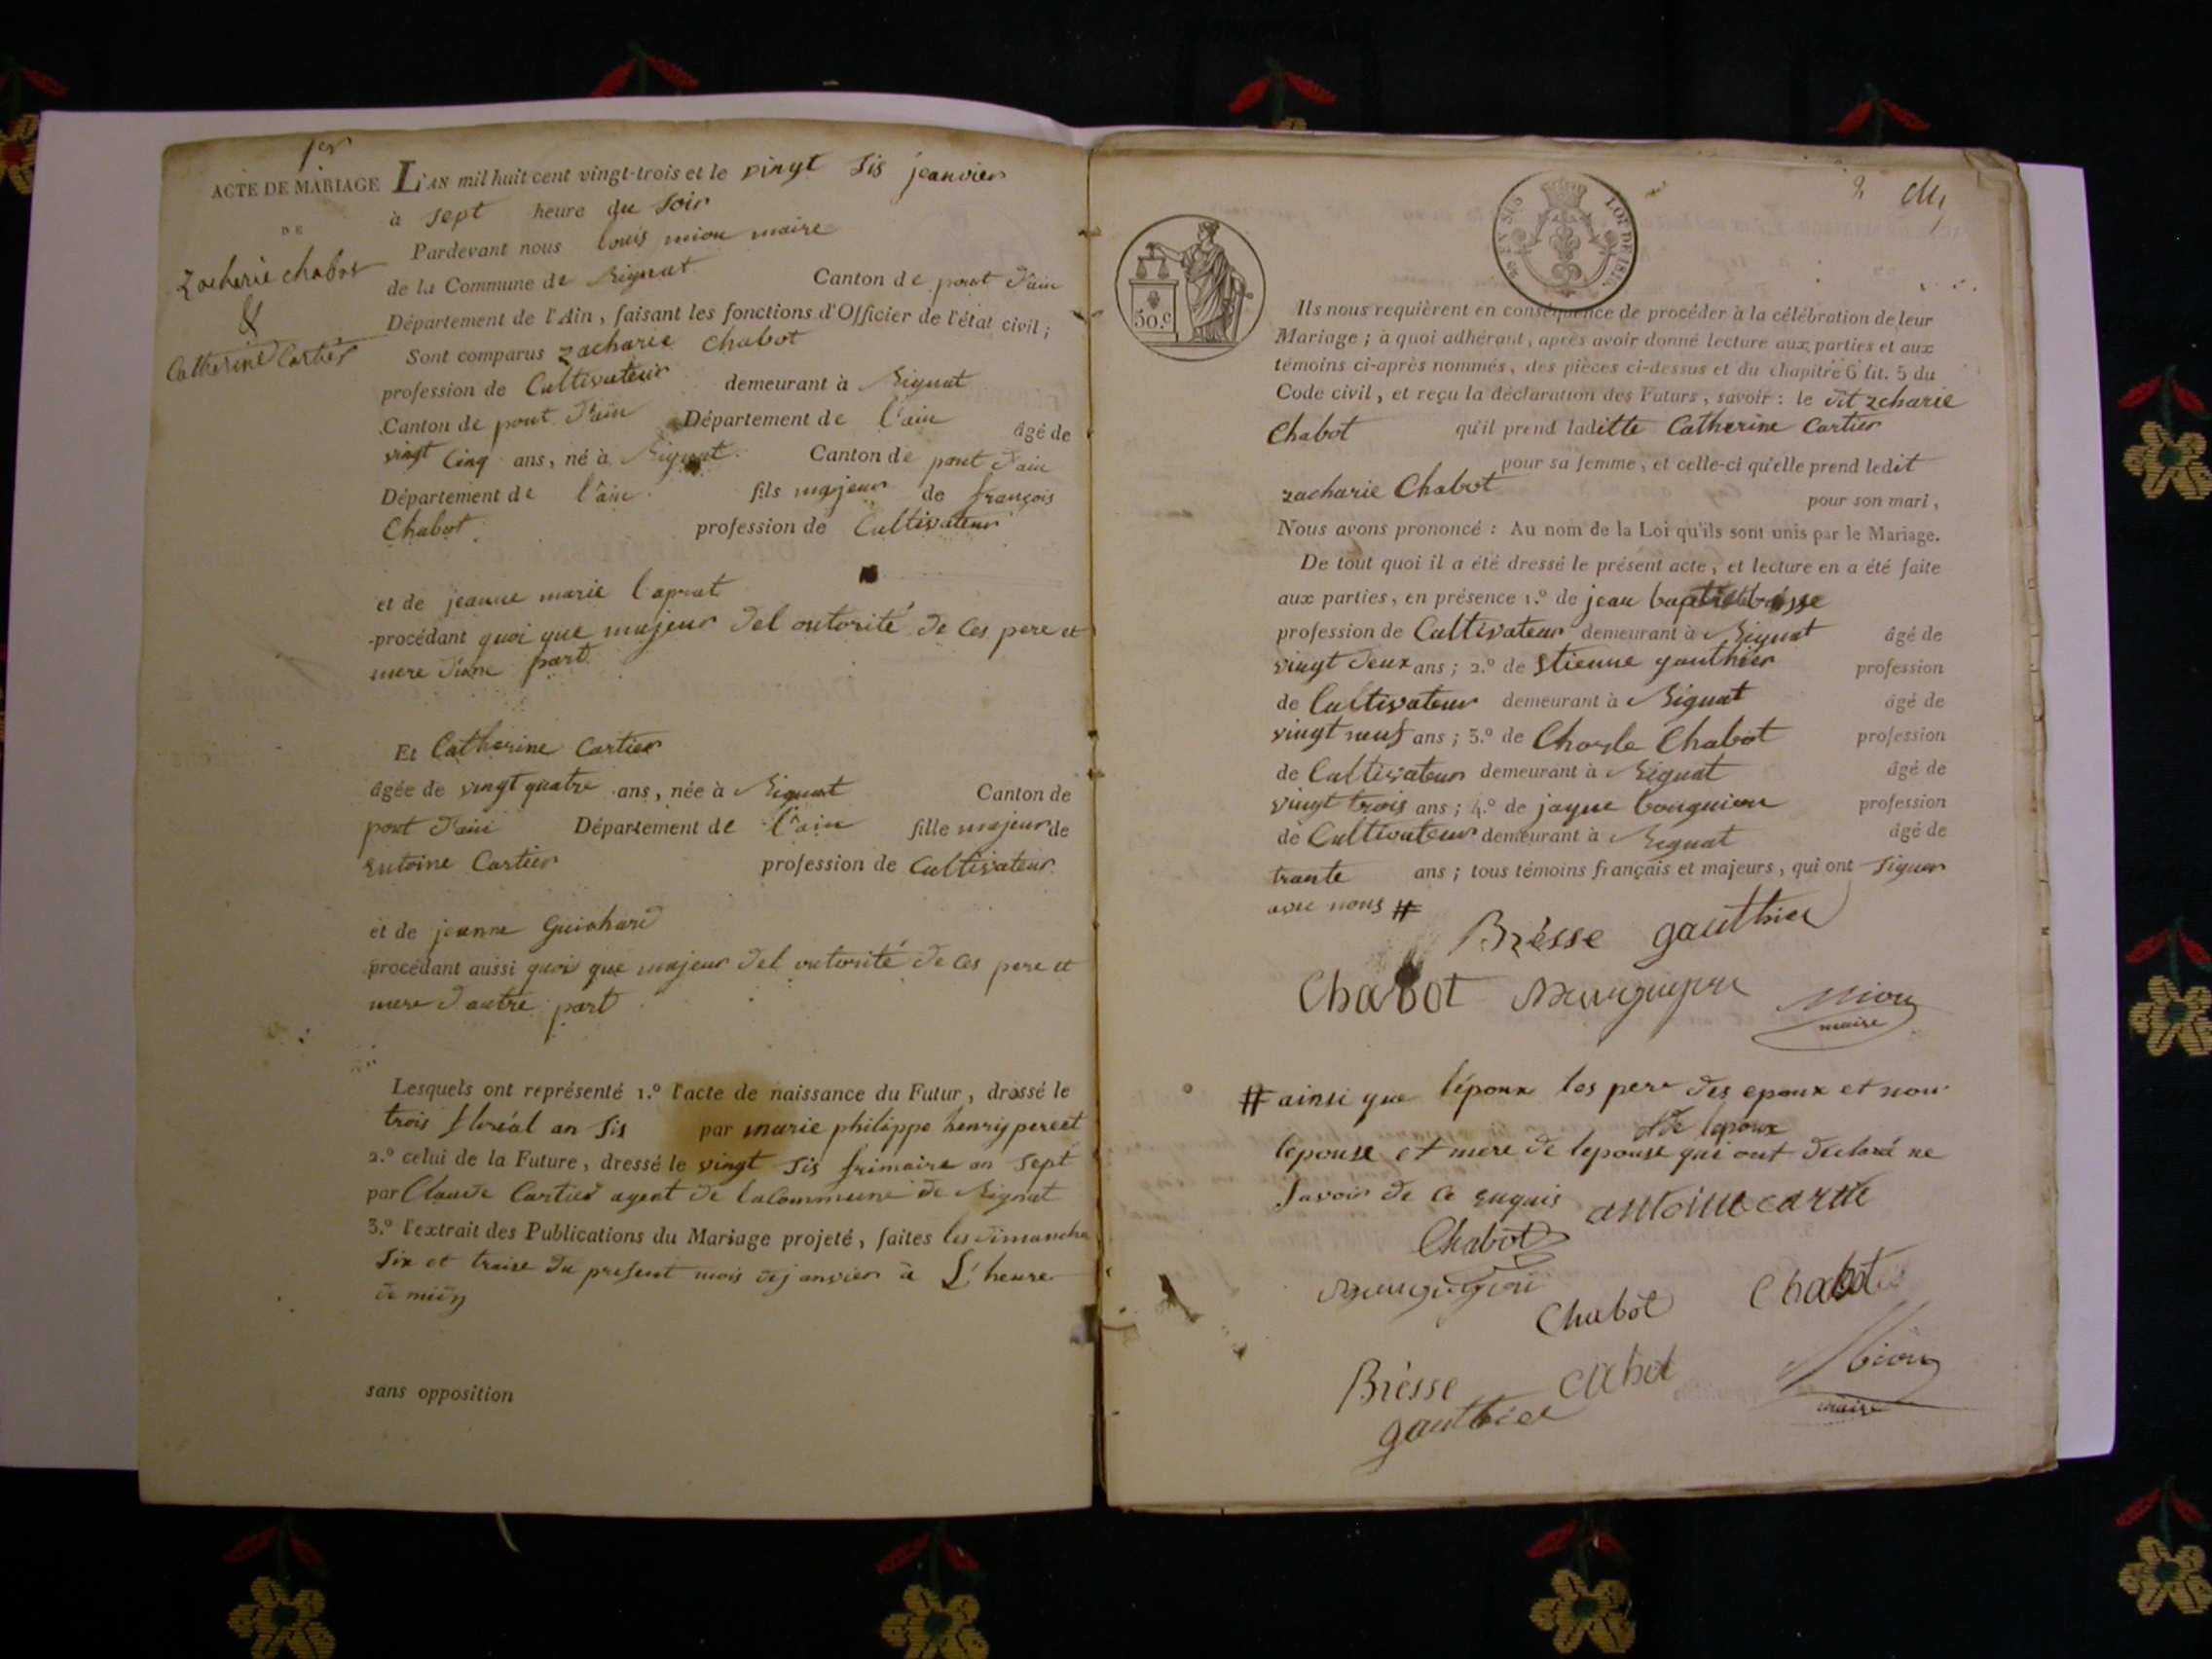 1er
ACTE DE MARIAGE
DE
Zacherie chabot
&
Catherine Cartier
L'AN mil huit cent vingt-trois et le vingt sis jeanvier
à sept heure du soir
Pardevant nous louis miou maire
de la Commune de Rignat Canton de pont d'ain
Département de l'Ain, faisant les fonctions d'Officier de l'état civil;
Sont comparus zacharie Chabot
profession de Cultivateur demeurant à Rignat
Canton de pont d'ain Département de l'ain âgé de
vingt cinq ans, né à Rignat Canton de pont d'ain
Département de l'ain fils majeur de françois
Chabot profession de Cultivateur
et de jeanne marie
procédant quoi que majeur del outorité de ces pere et
mere d'une part
Et Catherine Cartier
âgée de vingt quatre ans, née à Rignat Canton de
pont d'ain Département de l'ain fille majeur de
entoine Cartier profession de Cultivateur
et de jeanne
procédant aussi quoi que majeur del outorité de ces pere et
mere d'autre part
Lesquels ont représenté 1.º l'acte de naissance du Futur, dressé le
trois floréal an sis par marie philippe henry
2.º celui de la Future, dressé le vingt sis frimaire an sept
par Claude Cartier agent de la Commune de Rignat
3.º l'extrait des Publications du Mariage projeté, faites les dimanche
six et traise du present mois de janvier à L'heure
de midy
sans opposition
50 EN SUS
LOI DE
50.c
Ils nous requièrent en conséquence de procéder à la célébration de leur
Mariage; à quoi adhérant, après avoir donné lecture aux parties et aux
témoins ci-après nommés, des pièces ci-dessus et du chapitre 6 tit. 5 du
Code civil, et reçu la déclaration des Futurs, savoir: le dit zcharie
Chabot qu'il prend laditte Catherine Cartier
pour sa femme, et celle-ci qu'elle prend ledit
zacharie Chabot pour son mari,
Nous avons prononcé: Au nom de la Loi qu'ils sont unis par le Mariage.
De tout quoi il a été dressé le présent acte, et lecture en a été faite
aux parties, en présence 1.º de jean baptiste bresse
profession de Cultivateur demeurant à Rignat âgé de
vingt deux ans; 2.º de Etienne gauthier profession
de Cultivateur demeurant à Rignat âgé de
vingt neuf ans; 3.º de Charle Chabot profession
de Cultivateur demeurant à Rignat âgé de
vingt trois ans; 4.º de jaque profession
de Cultivateur demeurant à Rignat âgé de
trante ans; tous témoins français et majeurs, qui ont signer
avec nous #
Brèsse gauthier
Chabot miou
maire
# ainsi que l'époux les pere des epoux et non
et de lepoux
lepouse et mere de lepouse qui ont declaré ne
savoir de ce enquis
Chabot antoine cartie
Chabot Chabot
Brèsse miou
gauthier maire